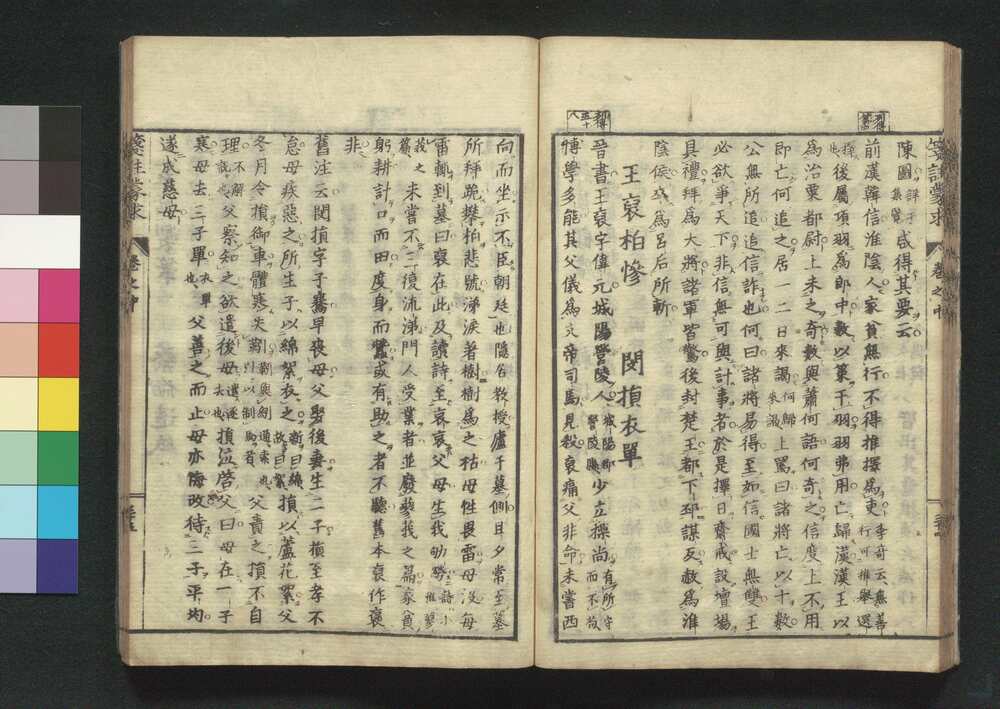 箋註蒙求 卷之中
陳國詳子集賢咸得其要云
前漢韓信淮陰人家貧無行不得推擇爲吏李奇云無善行可推舉選
擇也後屬項羽爲郎中數以策干羽羽弗用亡歸漢漢王以
爲治粟都尉上未之奇數與蕭何語何奇之信度上不用
即亡何追之居一二日來謁何歸來謁上罵曰諸將亡以十數
公無所追追信詐也何曰諸將易得至如信國士無雙王
必欲爭天下非信無可與計事者於是擇日齋戒設壇場
具禮拜爲大將諸軍皆驚後封楚王都下邳謀反赦爲淮
陰侯卒爲呂后所斬
王裒柏慘 閔損衣單
列傳五十八
晉書王裒字偉元城陽營陵人城陽郡營陵縣少立操尚有所守而不放
博學多能其父儀爲文帝司馬見殺裒痛父非命未嘗西
向而坐示不臣朝廷也隱居教授廬于墓側旦夕常至墓
所拜跪攀柏悲號涕淚著樹樹爲之枯母性畏雷母沒每
雷輒到墓曰裒在此及讀詩至哀哀父母生我劬勞詩小雅蓼
莪之篇未嘗不三復流涕門人受業者並廢蓼莪之篇家貧
躬耕計口而田度身而蠶或有助之者不聽舊本裒作褒
非
舊注云閔損字子騫早喪母父娶後妻生二子損至孝不
怠母疾惡之所生子以綿絮衣之損以蘆花絮父
冬月令損御車體寒失靷父責之損不自
理父察知之欲遣後母損泣啓父曰母在一子
寒母去三子單父善之而止母亦悔改待三子平均
遂成慈母
箋註蒙求 卷之中